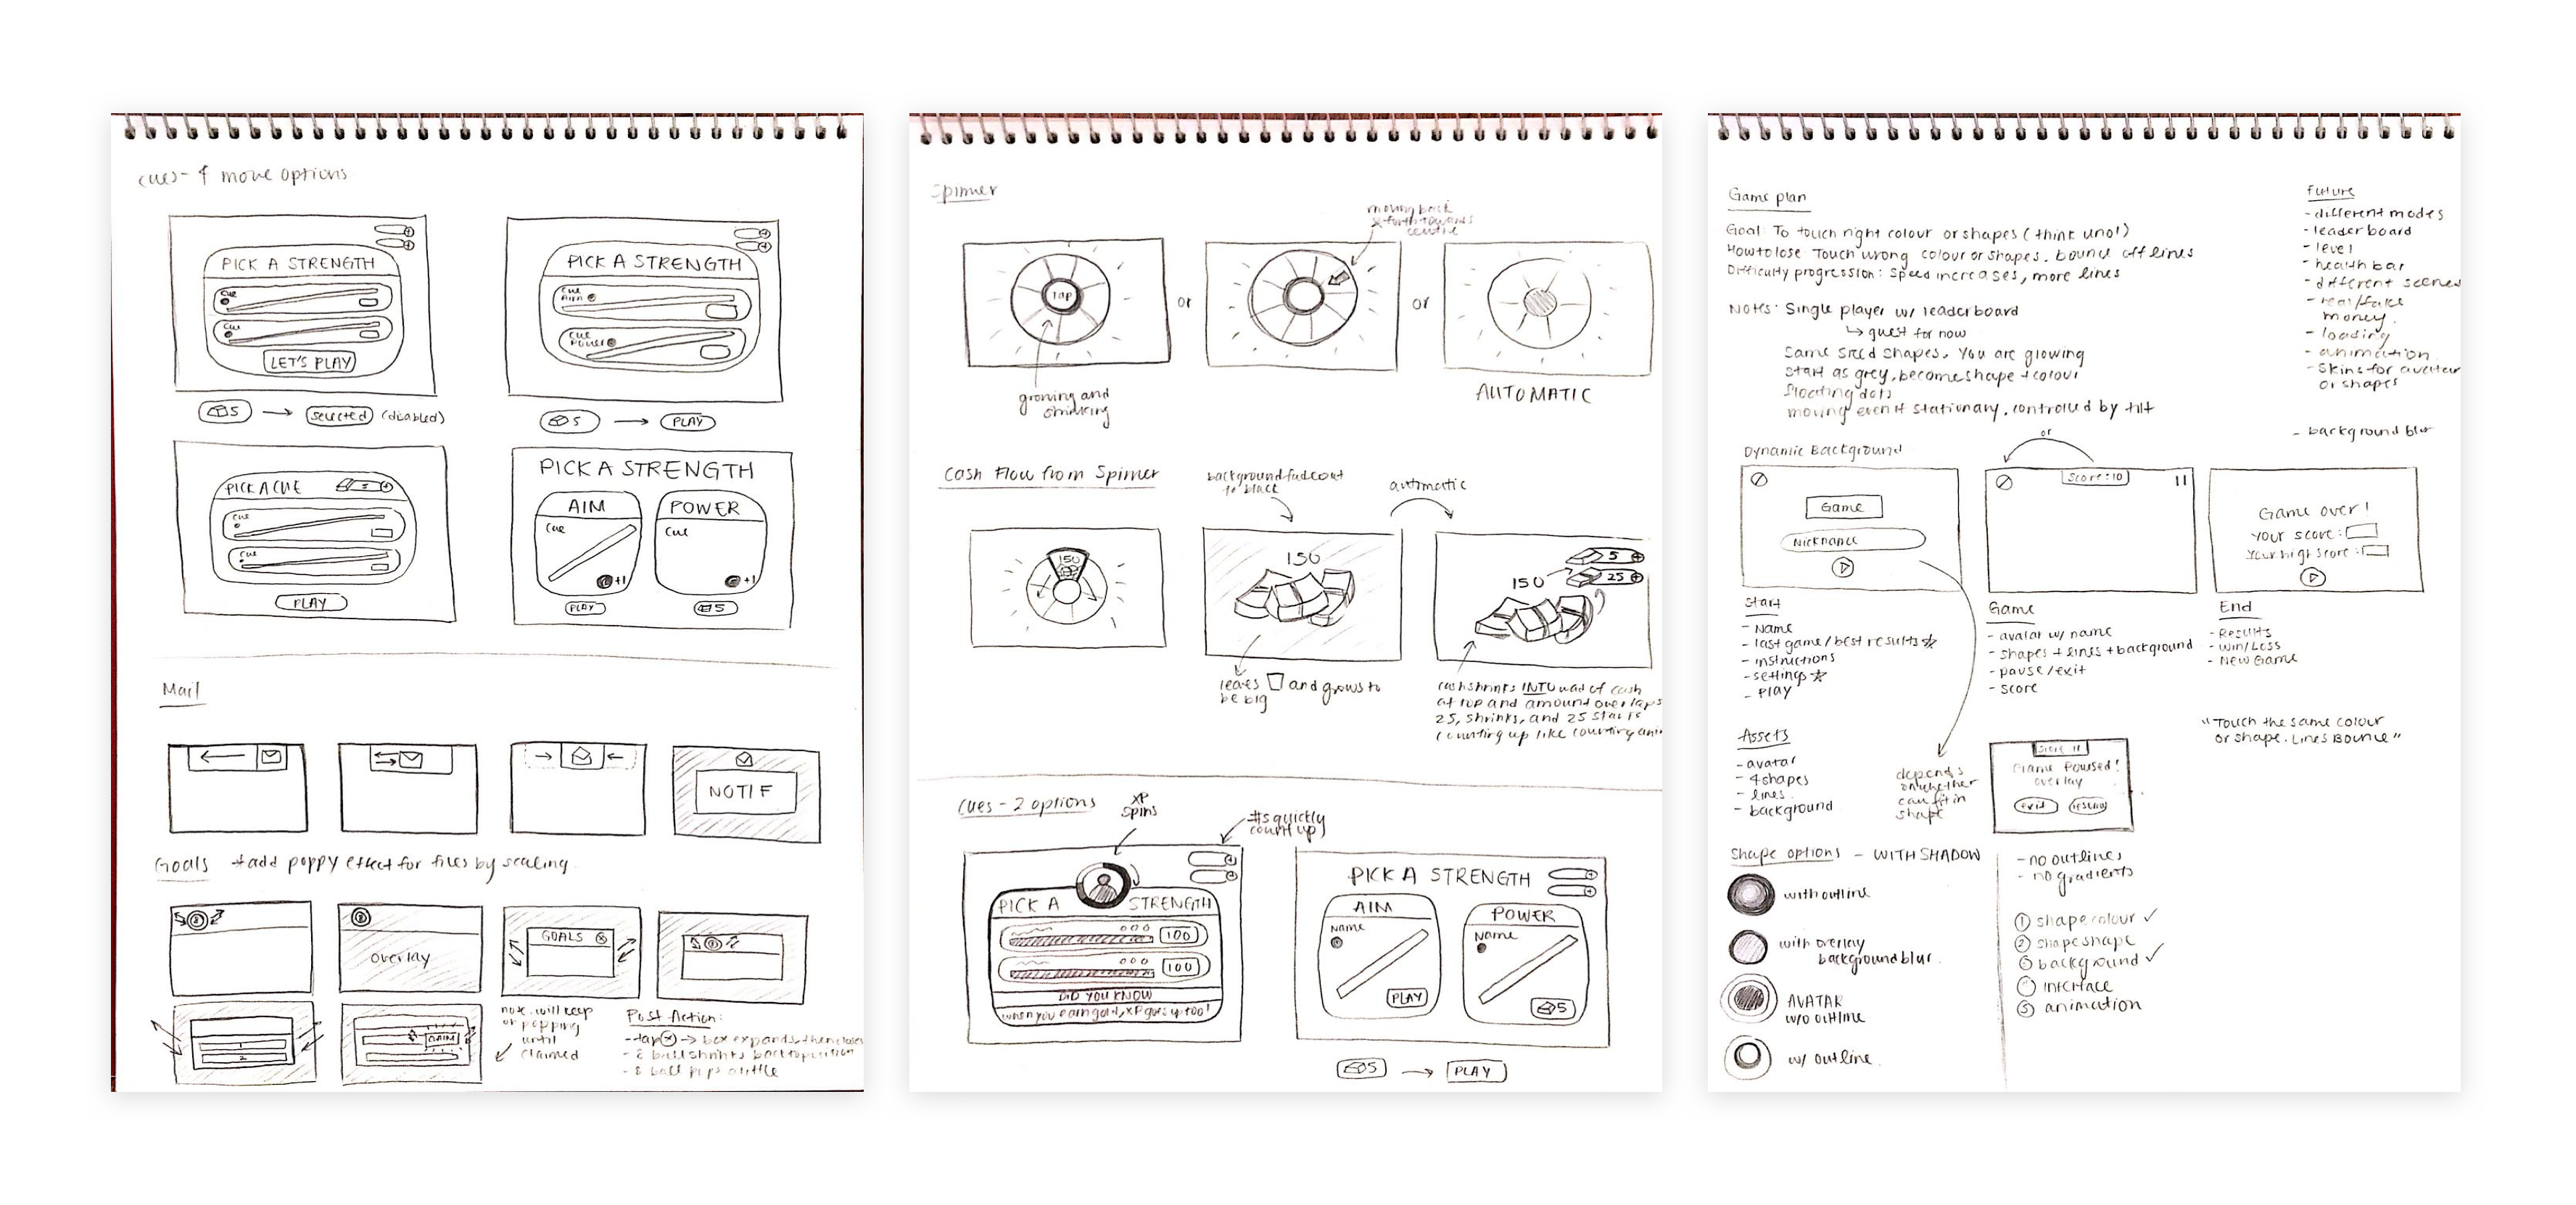 Cues - 4 more options
PICK A STRENGTH
Cue
Cue
LET'S PLAY
5 → selected (disabled)
PICK A STRENGTH
Cue
AIM
Cue
POWER
5 → PLAY
PICK A CUE
Cue
Cue
PLAY
PICK A STRENGTH
AIM
Cue
+1
PLAY
POWER
Cue
+1
5
Mail
NOTIF
Goals + add poppy effect for files by scaling
overlay
GOALS
1
2
CLAIM
note. will keep
on popping
until
claimed
Post Action:
- tap → box expands, then closes
- 8 ball shrinks back to position
- 8 ball pops a little
Spinner
moving back
& forth towards
centre
Tap
or
or
growing and
shrinking
AUTOMATIC
Cash Flow from Spinner
background fade out
to black
automatic
150
150
150
5
25
leaves and grows to
be big
cash shrinks INTO wad of cash
at top and amount overlaps
25, shrinks, and 25 starts
counting up like counting
Cues - 2 options
XP
spins
#s quickly
count up
PICK A STRENGTH
100
100
DID YOU KNOW
when you earn gold, XP goes up too!
PICK A STRENGTH
AIM
Name
PLAY
POWER
Name
5
5 → PLAY
Game plan
Goal: To touch right colour or shapes (think uno!)
How to lose Touch wrong colour or shapes. bounce off lines
Difficulty progression: Speed increases, more lines
Notes: Single player w/ leaderboard
↳ guest for now
Same sized shapes, you are growing
start as grey, become shape + colour
floating dots
moving even if stationary, controlled by tilt
Future
- different modes
- leaderboard
- level
- health bar
- different scenes
- real/fake
money.
- loading
- animation
- Skins for avatar
or shapes
- background blur
Dynamic Background
or
Game
Nickname
Score: 10
Game over!
Your score:
Your high score:
Start
- Name
- last game/best results ☆
- instructions
- settings ☆
- Play
Game
- avatar w/ name
- shapes + lines + background
- pause/exit
- score
End
- Results
- win/Loss
- New Game
"Touch the same colour
or shape. Lines Bounce"
Assets
- avatar
- 4 shapes
- lines
- background
depends
on whether
can fit in
shape
Score 11
Game Paused!
overlay
exit
resume
Shape options - WITH SHADOW
with outline
with overlay
background blur.
AVATAR
w/o outline
w/ outline.
- no outlines
- no gradients
① shape colour ✓
② shape shape
③ background ✓
interface
⑤ animation